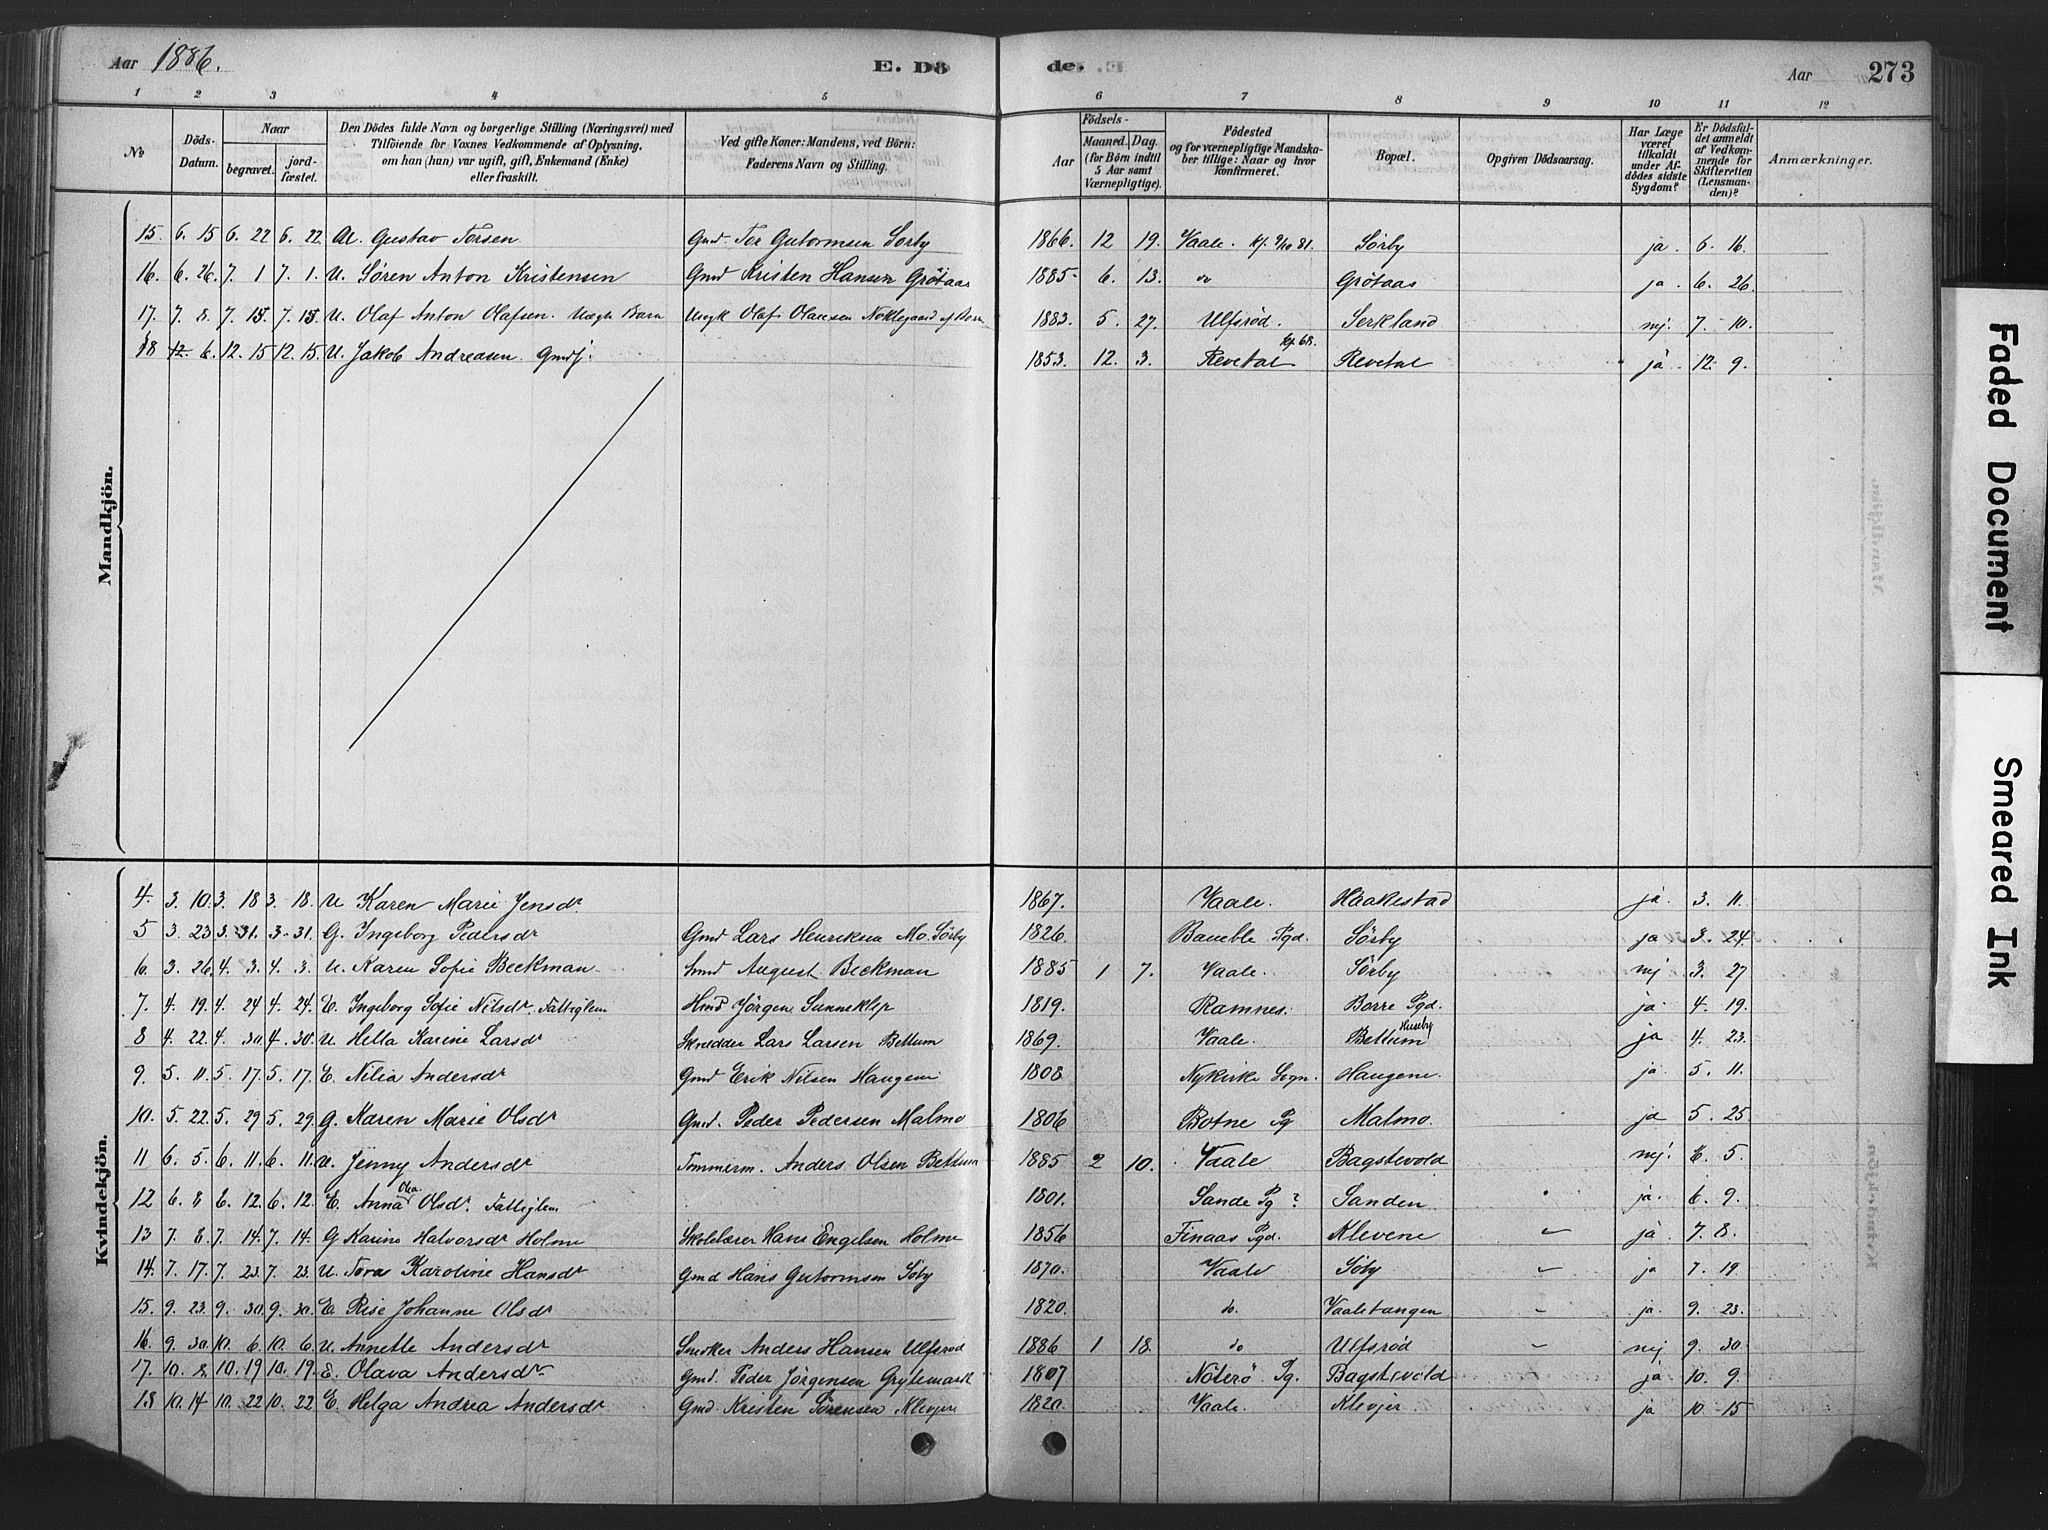 Aar 1886. E. Dö de. Aar 273
1 2 3 4 5 6 7 8 9 10 11 12
No
Döds-Datum.
Naar
begravet.
jord-fæstet.
Den Dödes fulde Navn og borgerlige Stilling (Næringsvei) med Tilföiende for Voxnes Vedkommende af Oplysning, om han (hun) var ugift, gift, Enkemand (Enke) eller fraskilt.
Ved gifte Koner: Mandens, ved Börn: Faderens Navn og Stilling.
Födsels-
Aar
Maaned. Dag.
(for Börn indtil 5 Aar samt Værnepligtige).
Födested og for værnepligtige Mandskaber tillige: Naar og hvor konfirmeret.
Bopæl.
Opgiven Dödsaarsag.
Har Læge været tilkaldt under Afdödes sidste Sygdom?
Er Dödsfaldet anmeldt af Vedkommende for Skifteretten (Lensmanden)?
Anmærkninger.
Mandkjön.
15. 6. 15 6. 22 6. 22 U. Gustav Torsen Gmd. Tor Gutormsen Sörby 1866. 12 19. Vaale. kf. 9/10 81. Sörby ja. 6. 16.
16. 6. 26. 7. 1 7. 1. U. Sören Anton Kristensen Gmd Kristen Hansen Grötaas 1885 6. 13. do Grötaas ja. 6. 26.
17. 7. 8. 7. 15. 7. 15. U. Olaf Anton Olafsen. Uægte Barn Ungk Olaf Olausen 1883. 5. 27. Ulfsröd. Serkland nej. 7. 10.
18 12. 6. 12. 15 12. 15. U. Jakob Andreasen. Gmdj. 1853. 12. 3. Revetal kf. 68. Revetal ja. 12. 9.
Kvindekjön.
4. 3. 10. 3. 18 3. 18. U Karen Marie Jensdr 1867. Vaale. Haakestad ja. 3. 11.
5 3. 23 3. 31. 3. 31. G. Ingeborg Pedersdr Gmd Lars Henriksen Mo. Sörby 1826. Bamble Pgd. Sörby ja 3. 24.
6. 3. 26. 4. 3. 4. 3. U. Karen Sofie Beckman Smed August Beckman 1885 1 7. Vaale. Sörby nej 3. 27
7. 4. 19. 4. 24 4. 24. E. Ingeborg Sofie Nilsdr. Fattiglem Hmd Jörgen Sunneklep 1819. Ramnes. Borre Pgd. ja. 4. 19.
8 4. 22. 4. 30. 4. 30. U Hella Karine Larsdr Skrædder Lars Larsen Bettum 1869. Vaale. Bettum Huseby ja 4. 23.
9. 5. 11. 5. 17. 5. 17. E. Nilia Andersdr Gmd Erik Nilsen Haugene 1808 Nykirke Sogn. Haugene. ja. 5. 11.
10. 5. 22. 5. 29 5. 29. G. Karen Marie Olsdr Gmd. Peder Pedersen Malmo 1806 Botne Pg Malmo. ja 5. 25.
11 6. 5. 6. 11. 6. 11. U. Jenny Andersdr Tømmerm. Anders Olsen Bettum 1885 2 10. Vaale Bagstevold nej. 6. 5.
12 6. 8 6. 12. 6. 12. E. Anna Olea Olsdr. Fattiglem 1801. Sande Pg ? Sanden ja. 6. 9.
13 7. 8. 7. 14. 7. 14. G Karine Halvorsdr Holme Skolelærer Hans Engelsen Holme 1856 Finaas Pgd. Klevene ja. 7. 8.
14. 7. 17. 7. 23. 7. 23. U. Tora Karoline Hansdr Gmd Hans Gutormsen Söby 1870. Vaale Söby ja 7. 19.
15. 9. 23. 9. 30. 9. 30. E. Rise Johanne Olsdr 1820. do. Vaaletangen ja. 9. 23.
16. 9. 30. 10. 6 10. 6. U. Annette Andersdr Smeker Anders Hansen Ulfsröd 1886 1 18. do Ulfsröd nej 9. 30.
17. 10. 8. 10. 19 10. 19. E. Olava Andersdr Gmd. Peder Jörgensen Grytemark 1807 Nöterö Pg. Bagstevold ja. 10. 9.
18 10. 14 10. 22 10. 22 E. Helga Andrea Andersdr Gmd. Kristen Sörensen Klevjer 1820. Vaale. Klevjer ja 10. 15
Faded Document
Smeared Ink